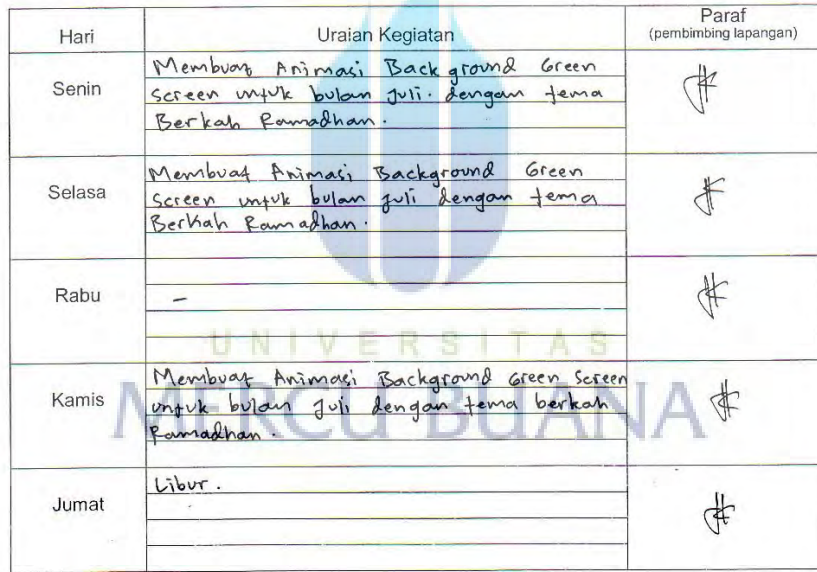 Hari Uraian Kegiatan Paraf
(pembimbing lapangan)
Senin
Membuat Animasi Background Green
Screen untuk bulan Juli. dengan tema
Berkah Ramadhan.
Selasa
Membuat Animasi Background Green
Screen untuk bulan Juli dengan tema
Berkah Ramadhan.
Rabu
-
UNIVERSITAS
MERCU BUANA
Kamis
Membuat Animasi Background Green Screen
untuk bulan Juli dengan tema berkah
Ramadhan.
Jumat
Libur.